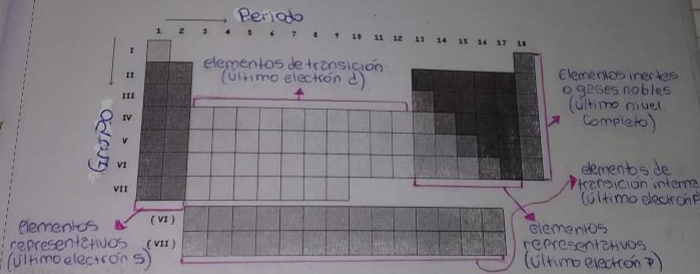 Periodo
1 2 3 4 5 6 7 8 9 10 11 12 13 14 15 16 17 18
Grupo
I
II
III
IV
V
VI
VII
(VI)
(VII)
elementos de transición
(último electrón d)
Elementos inertes
o gases nobles
(último nivel
completo)
elementos de
transición interna
(último electrón
elementos
representativos
(último electrón s)
elementos
representativos
(último electrón p)